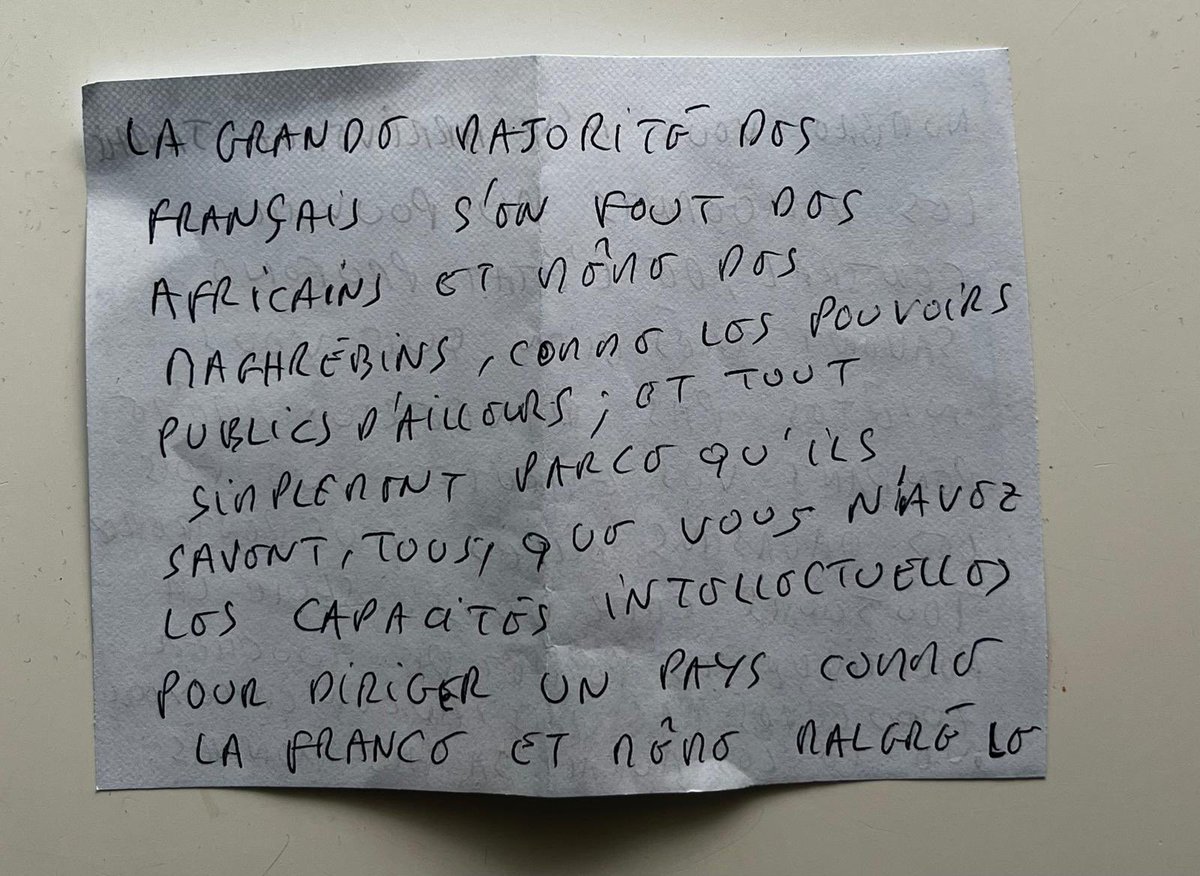 LA GRANDE MAJORITÉ DES
FRANÇAIS S'EN FOUT DES
AFRICAINS ET MÊME DES
MAGHRÉBINS, COMME LES POUVOIRS
PUBLICS D'AILLEURS; ET TOUT
SIMPLEMENT PARCE QU'ILS
SAVENT, TOUS, QUE VOUS N'AVEZ
LES CAPACITÉS INTELLECTUELLES
POUR DIRIGER UN PAYS COMME
LA FRANCE ET MÊME MALGRÉ LE